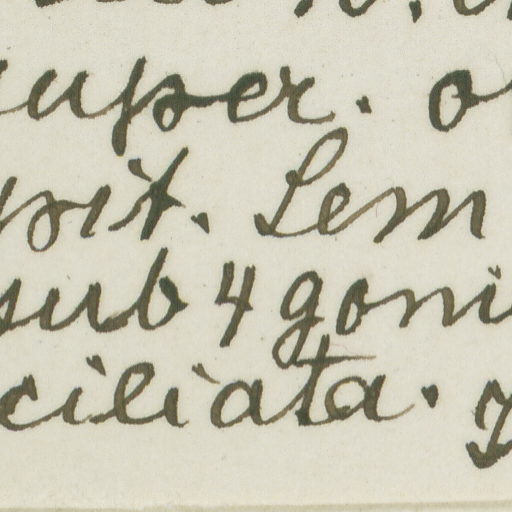 super. o
pit. Lem
sub 4 goni
ciliata.